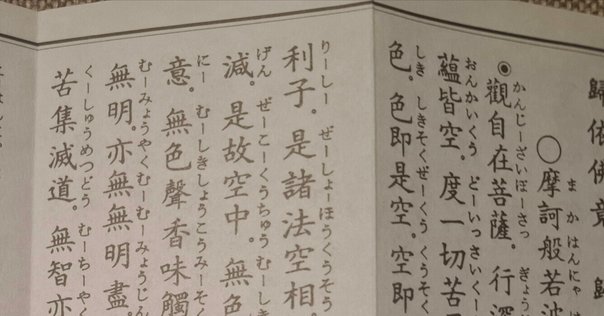 歸依佛竟 歸
まかはんにゃは
◯摩訶般若波
かんじーざいぼーさっ ぎょう
◉觀自在菩薩。行深
おんかいくう どーいっさいくー
蘊皆空。度一切苦
しき しきそくぜーくう くうそく
色。色即是空。空即
りーしー ぜーしょーほうくうそう
利子。是諸法空相。
げん ぜーこーくうちゅう むーし
減。是故空中。無色
にー むーしきしょうこうみーそく
意。無色聲香味觸
むーみょうやくむーむーみょうじん
無明。亦無無明盡。
くーしゅうめつどう むーちーやく
苦集滅道。無智亦